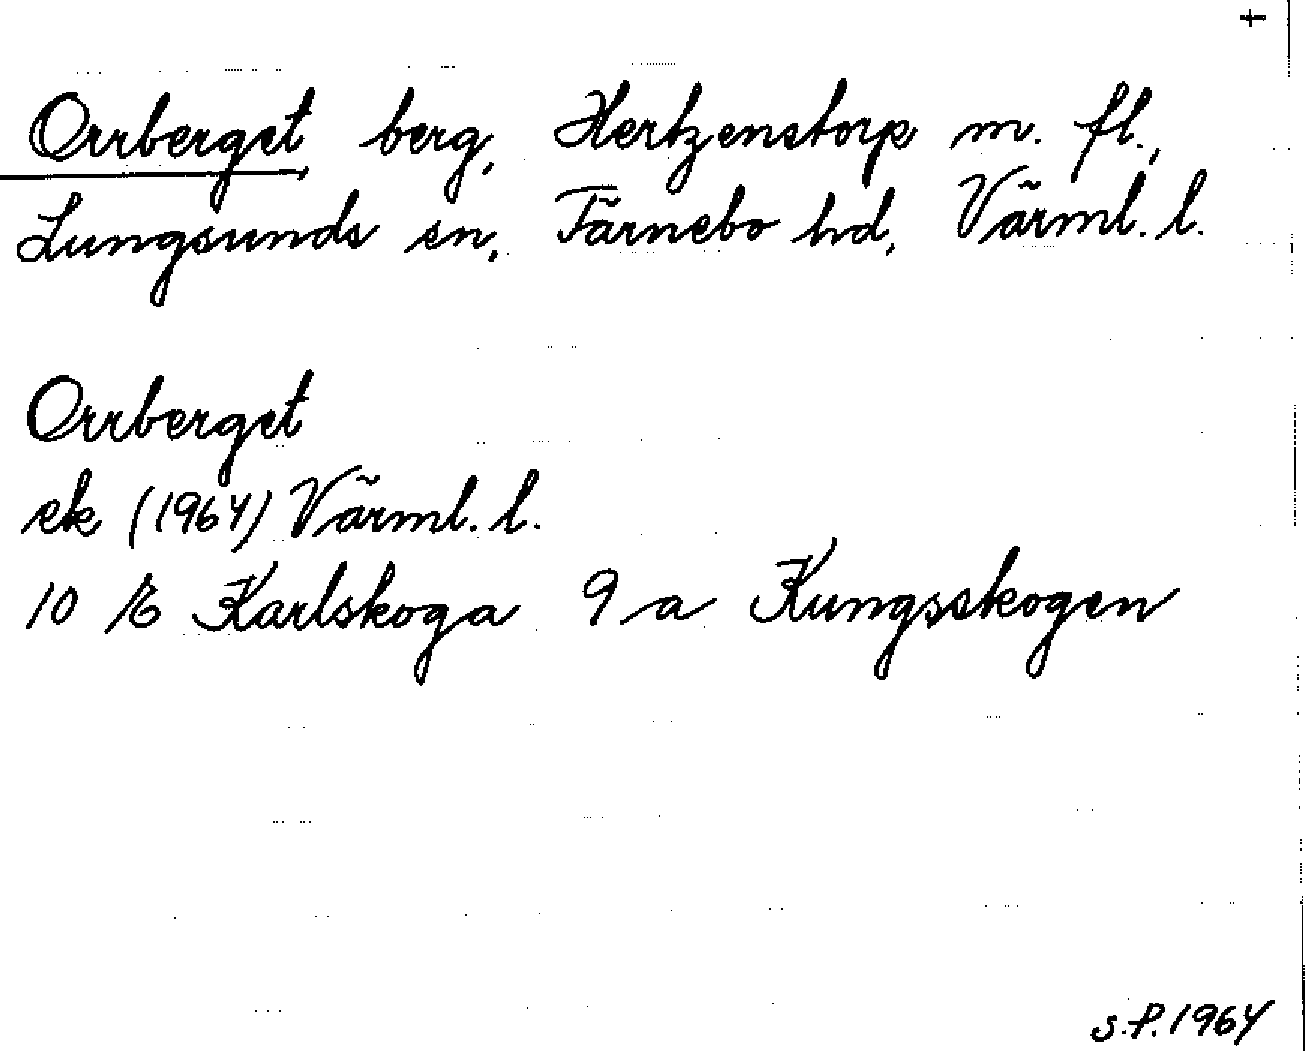 +
Orrberget, berg, Hertzenstorp m. fl.,
Lungsunds sn, Färnebo hd, Värml. l.
Orrberget
ek (1964) Värml. l.
10 E Karlskoga 9 a Kungsskogen
S.P. 1964